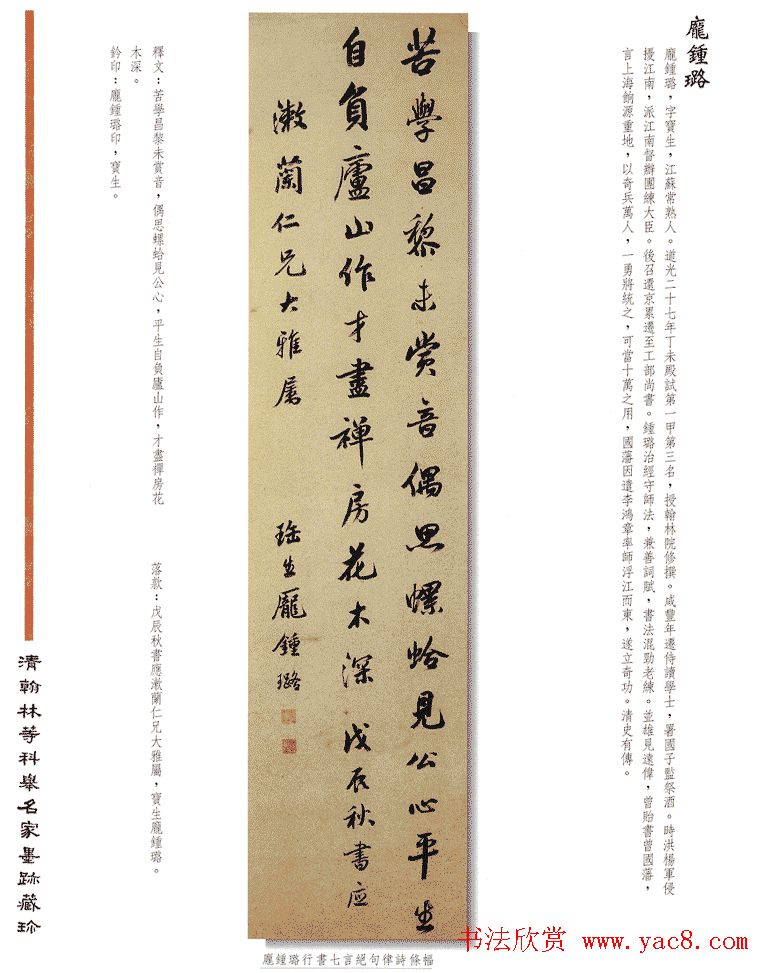 龐鍾璐
龐鍾璐，字寶生，江蘇常熟人。道光二十七年丁未殿試第一甲第三名，授翰林院修撰。咸豐年遷侍讀學士，署國子監祭酒。時洪楊軍侵
擾江南，派江南督辦團練大臣。後召還京累遷至工部尚書。鍾璐治經守師法，兼善詞賦，書法混勁老練。並雄見遠偉，曾貽書曾國藩，
言上海餉源重地，以奇兵萬人，一勇將統之，可當十萬之用，國藩因遣李鴻章率師浮江而東，遂立奇功。清史有傳。
苦學昌黎未賞音偶思螺蛤見公心平生
自負廬山作才盡禪房花木深 戊辰秋書應
漱蘭仁兄大雅屬 珤生龐鍾璐
釋文：苦學昌黎未賞音，偶思螺蛤見公心，平生自負廬山作，才盡禪房花
木深。
鈐印：龐鍾璐印，寶生。
落款：戊辰秋書應漱蘭仁兄大雅屬，寶生龐鍾璐。
清翰林等科舉名家墨跡藏珍
龐鍾璐行書七言絕句律詩條幅
书法欣赏 www.yac8.com